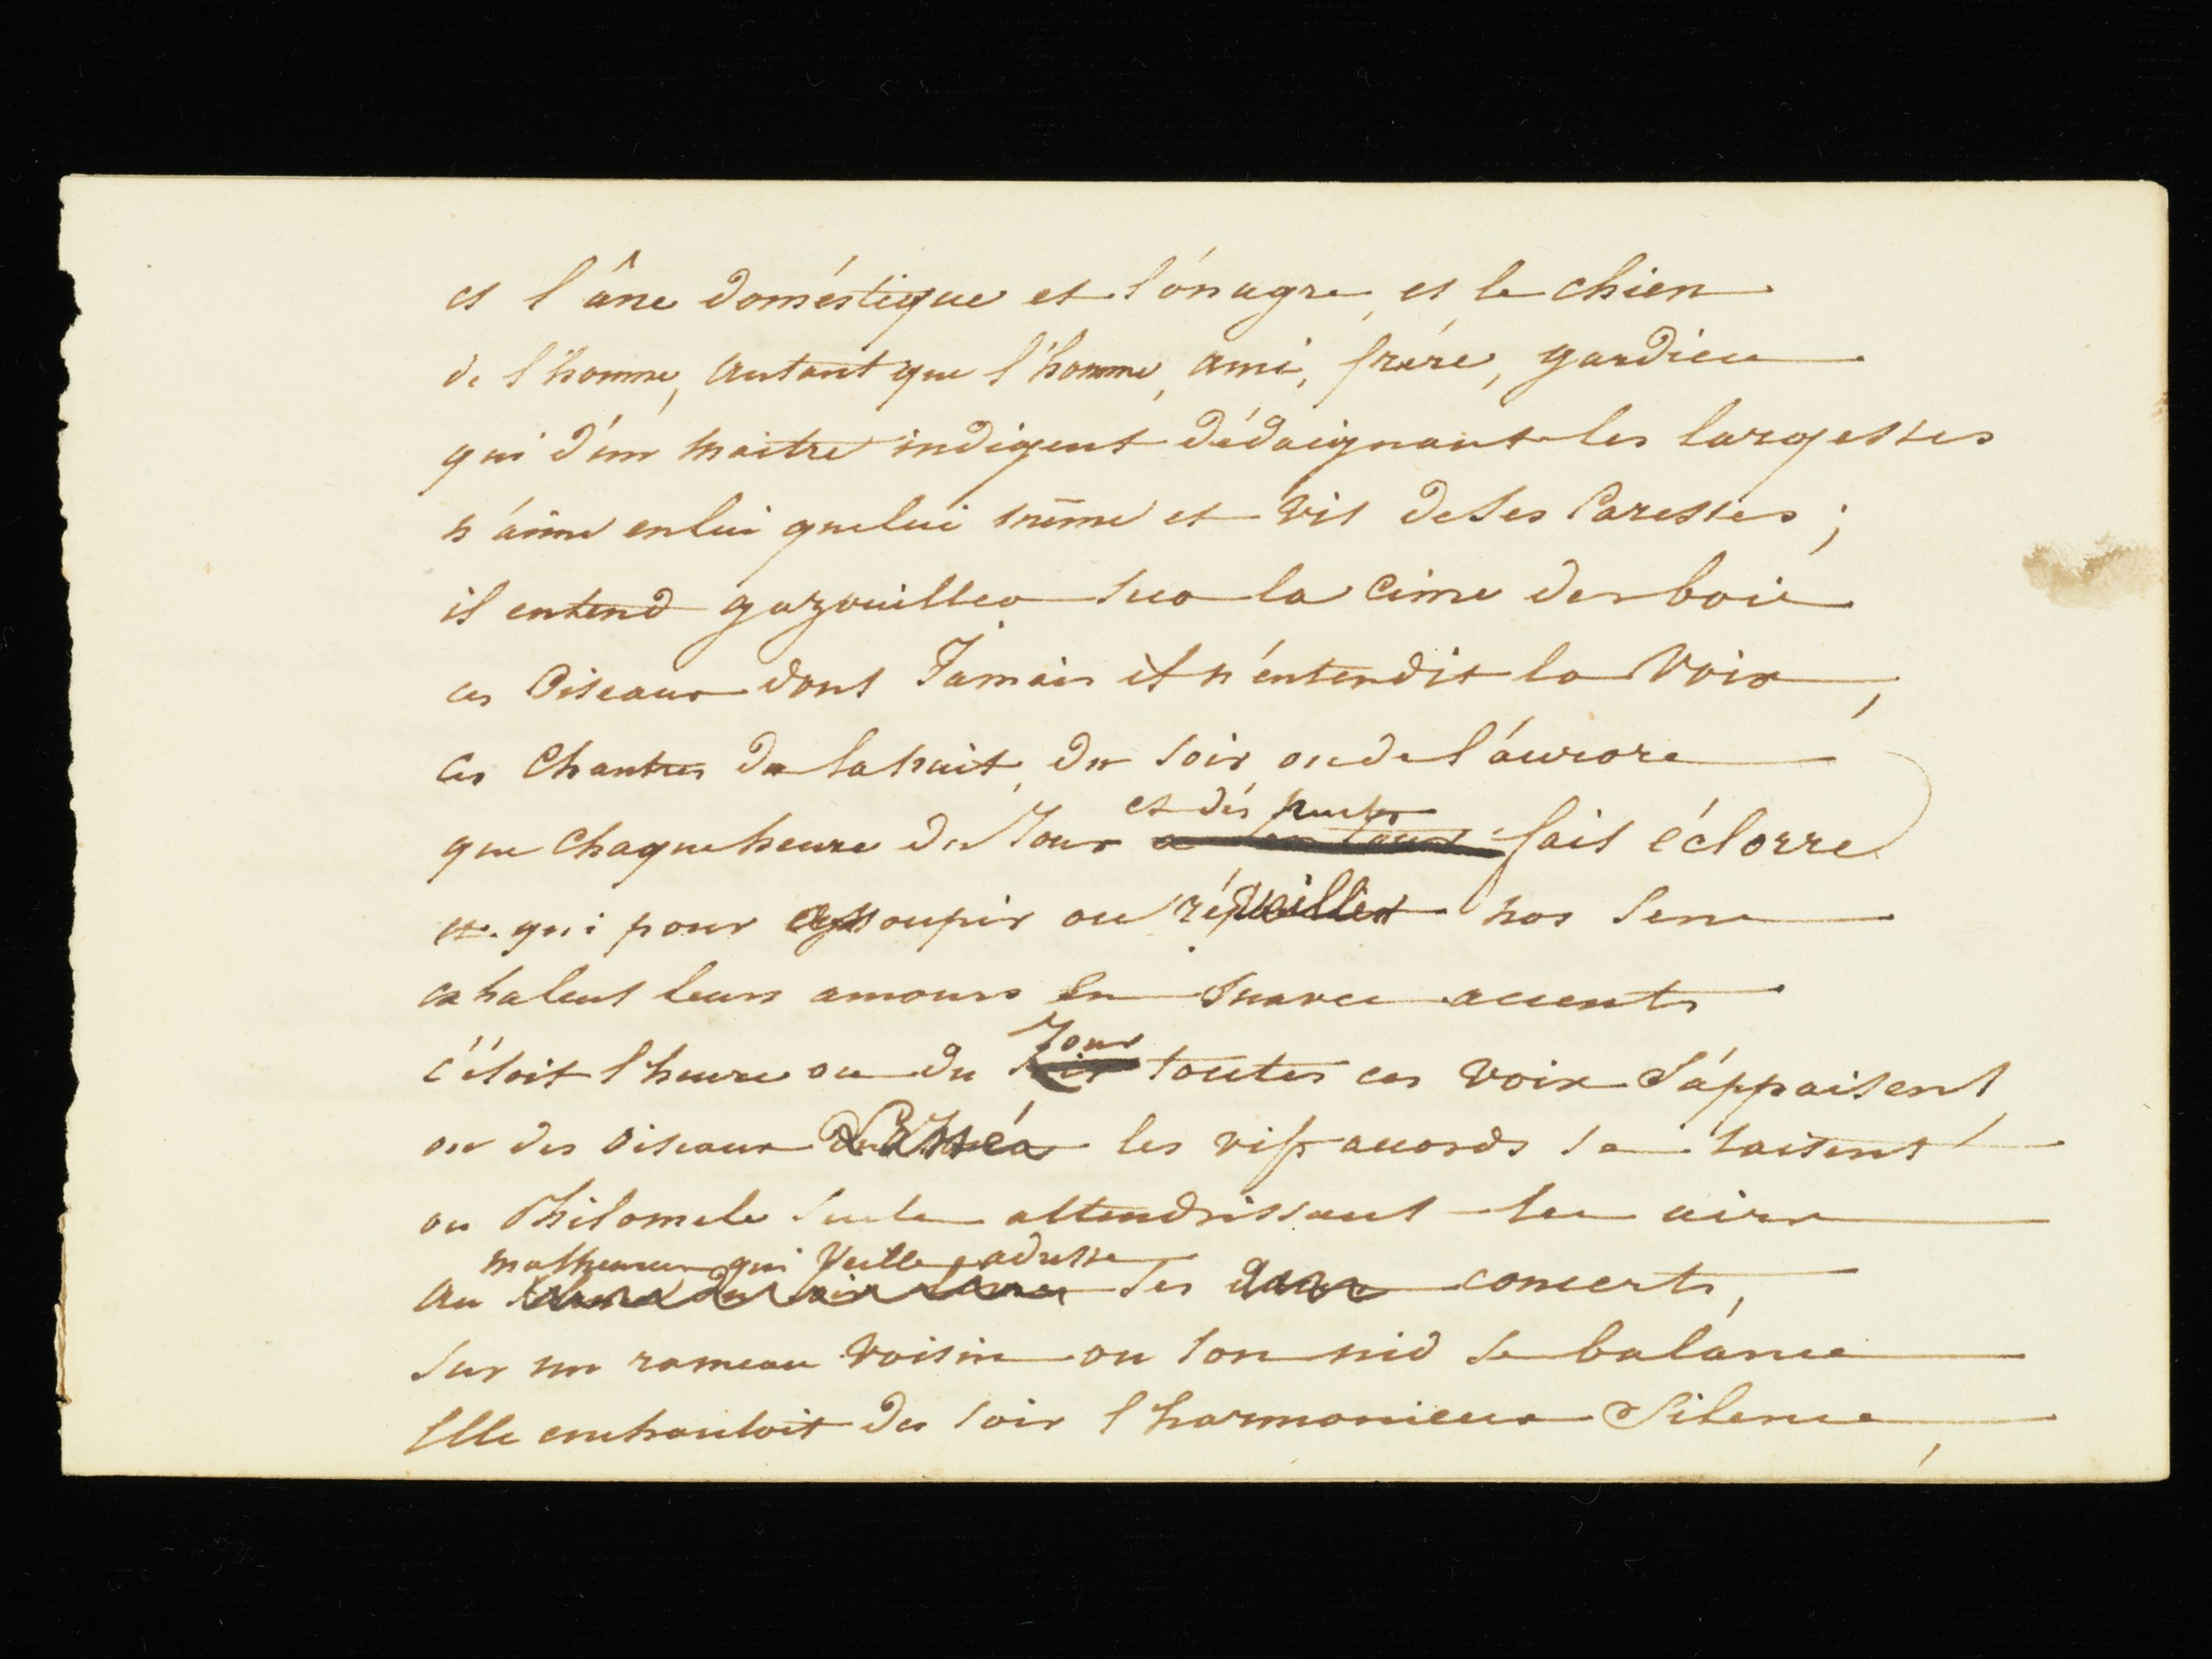 et l'âne doméstique et l'ónagre, et le chien
de l'homme, autant que l'homme, ami, frére, gardien
qui d'un maitre indigent dédaignant les largesses
n'aime en lui que lui même et vit de ses Caresses ;
il entend gazouiller sur la Cime des bois
ces Oiseaux dont Jamais il n'entendit la Voix,
ces Chantres de la nuit, du soir, ou de l'áurore
et dés nuits
que chaque heure du Jour fait éclorre
et qui pour assoupir ou réveiller nos sens
exhalent leurs amours en suaves accents
Jour
c'étoit l'heure ou du toutes ces voix s'áppaisent,
ou des oiseaux les vifs accords se taisent
ou Philomele seule attendrissant les airs
malheureux qui Veille, adresse
au ses concerts,
sur un rameau voisin ou son nid se balance
Elle enchantoit du soir l'harmonieux Silence,